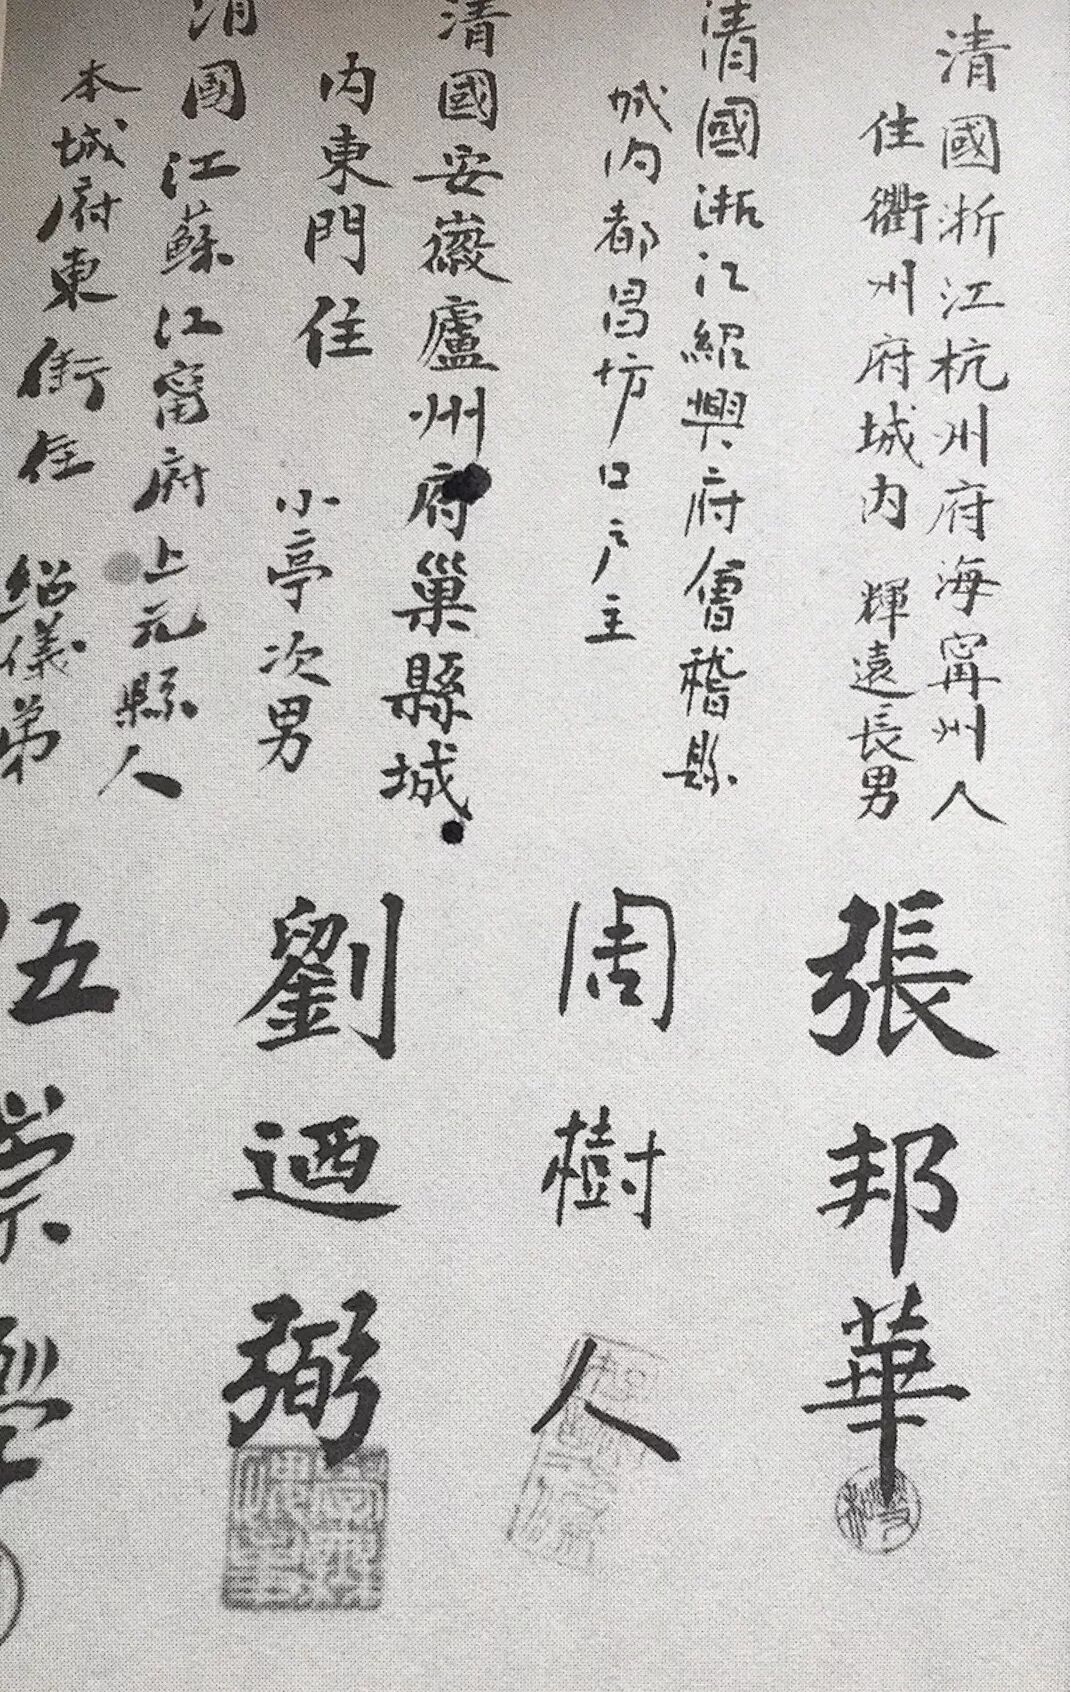 清國浙江杭州府海甯州人
住衢州府城内 輝遠長男
張邦華
清國浙江紹興府會稽縣
城内都昌坊口戸主
周樹人
清國安徽廬州府巢縣城
内東門住 小亭次男
劉迺弼
清国江蘇江甯府上元縣人
本城府東街住 紹儀弟
伍崇學